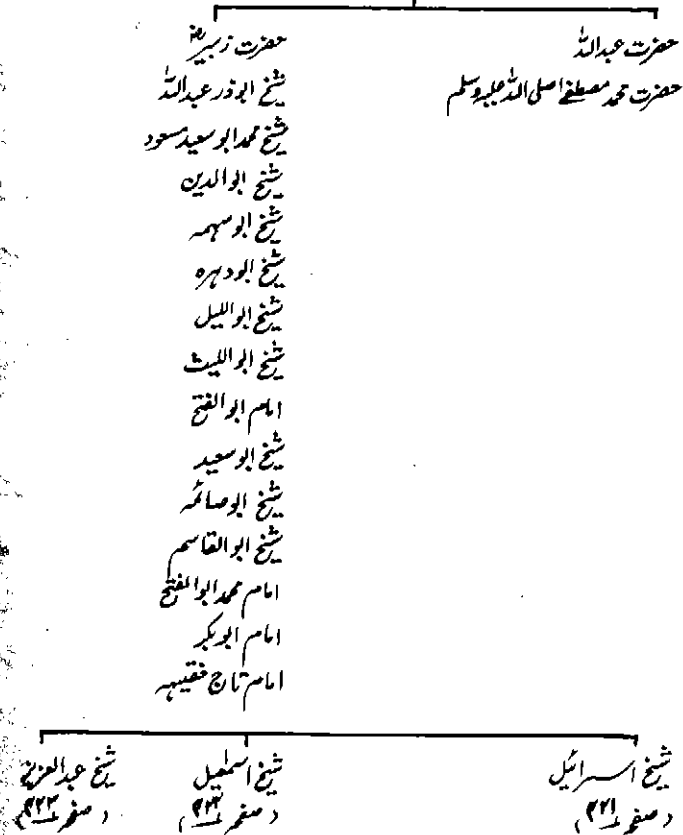 حضرت عبداللہ
حضرت محمد مصطفےٰ صلی اللہ علیہ وسلم
حضرت زبیرؓ
شیخ ابوذر عبداللہ
شیخ محمد ابو سعید مسعود
شیخ ابوالدین
شیخ ابوسہمہ
شیخ ابودہرہ
شیخ ابواللیل
شیخ ابواللیث
امام ابوالفتح
شیخ ابوسعید
شیخ ابوصائمہ
شیخ ابوالقاسم
امام محمد ابوالفتح
امام ابوبکر
امام تاج فقیہہ
شیخ اسرائیل
(صفحہ ۲۲۱)
شیخ اسمٰعیل
(صفحہ)
شیخ عبدالعزیز
(صفحہ ۲۲۳)